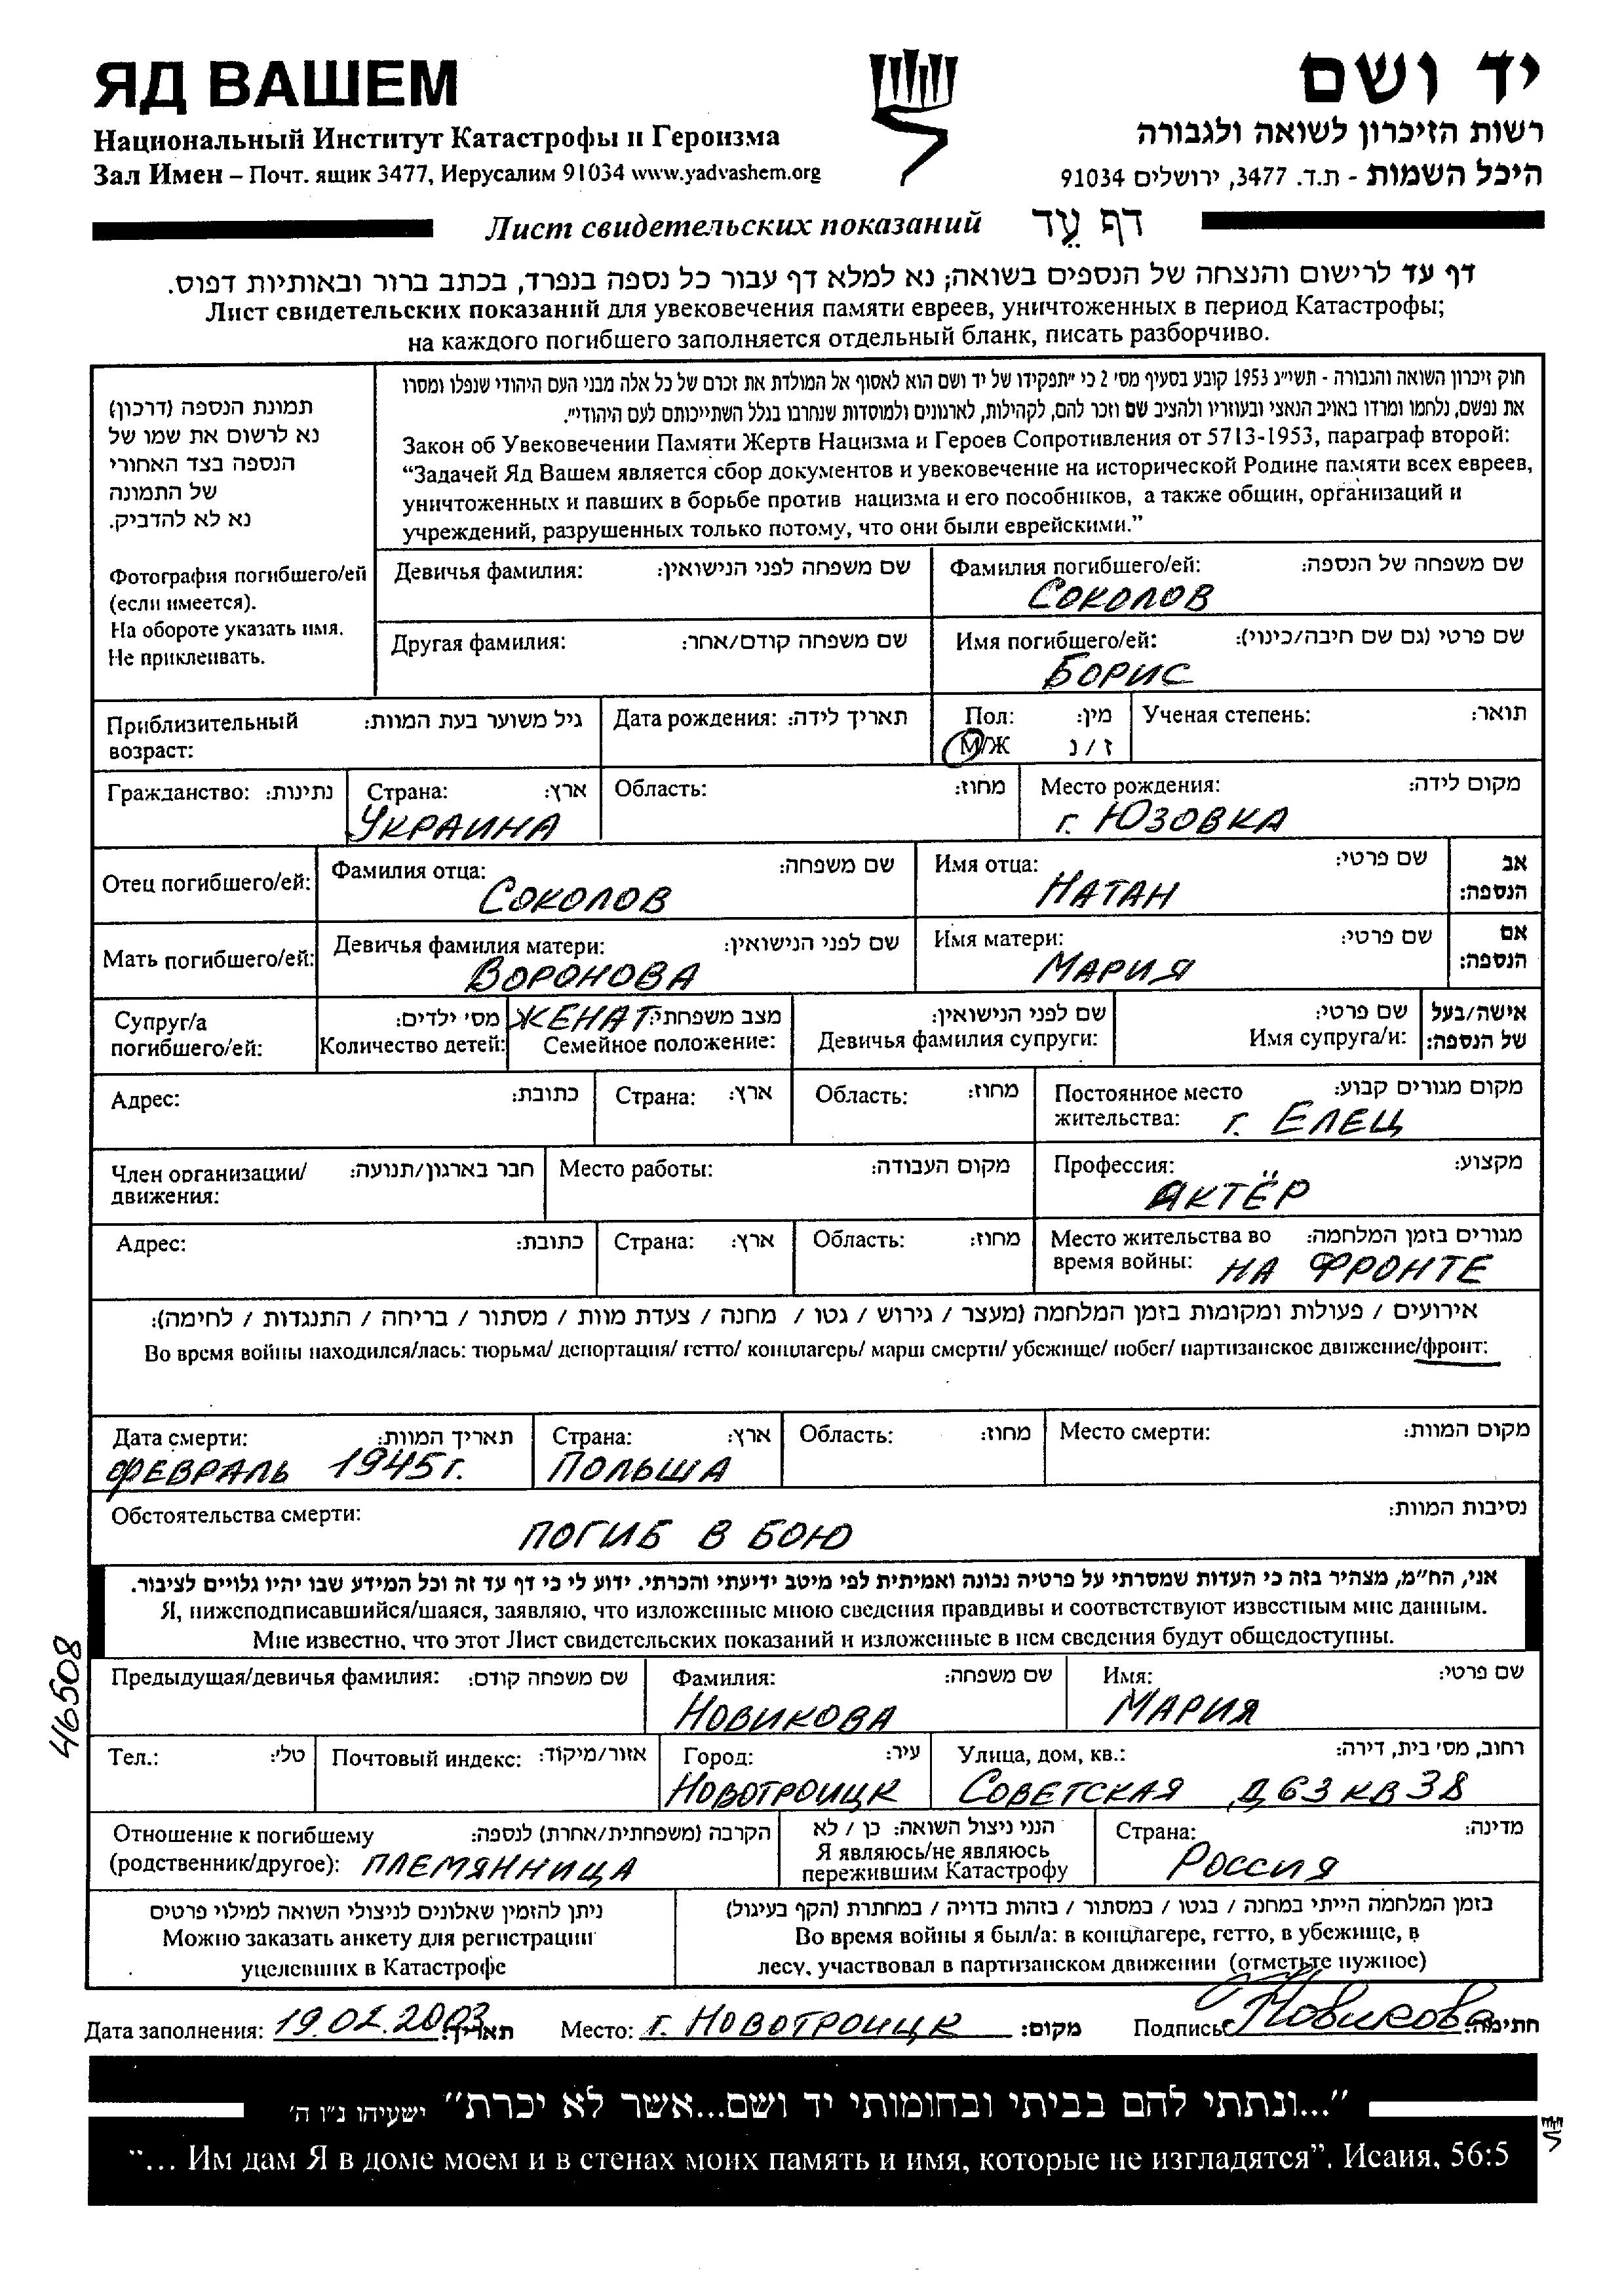 ЯД ВАШЕМ
יד ושם
Национальный Институт Катастрофы и Героизма
רשות הזיכרון לשואה ולגבורה
Зал Имен – Почт. ящик 3477, Иерусалим 91034 www.yadvashem.org
היכל השמות - ת.ד. 3477, ירושלים 91034
Лист свидетельских показаний דף עֵד
דף עד לרישום והנצחה של הנספים בשואה; נא למלא דף עבור כל נספה בנפרד, בכתב ברור ובאותיות דפוס.
Лист свидетельских показаний для увековечения памяти евреев, уничтоженных в период Катастрофы;
на каждого погибшего заполняется отдельный бланк, писать разборчиво.
תמונת הנספה (דרכון)
נא לרשום את שמו של
הנספה בצד האחורי
של התמונה
נא לא להדביק.
Фотография погибшего/ей
(если имеется).
На обороте указать имя.
Не приклеивать.
חוק זיכרון השואה והגבורה - תשי״ג 1953 קובע בסעיף מס׳ 2 כי ״תפקידו של יד ושם הוא לאסוף אל המולדת את זכרם של כל אלה מבני העם היהודי שנפלו ומסרו
את נפשם, נלחמו ומרדו באויב הנאצי ובעוזריו ולהציב שם וזכר להם, לקהילות, לארגונים ולמוסדות שנחרבו בגלל השתייכותם לעם היהודי״.
Закон об Увековечении Памяти Жертв Нацизма и Героев Сопротивления от 5713-1953, параграф второй:
“Задачей Яд Вашем является сбор документов и увековечение на исторической Родине памяти всех евреев,
уничтоженных и павших в борьбе против нацизма и его пособников, а также общин, организаций и
учреждений, разрушенных только потому, что они были еврейскими.”
Девичья фамилия: שם משפחה לפני הנישואין:
Фамилия погибшего/ей: שם משפחה של הנספה:
СОКОЛОВ
Другая фамилия: שם משפחה קודם/אחר:
Имя погибшего/ей: שם פרטי (גם שם חיבה/כינוי):
БОРИС
Приблизительный возраст: גיל משוער בעת המוות:
Дата рождения: תאריך לידה:
Пол: מין:
М/Ж ז / נ
Ученая степень: תואר:
Гражданство: נתינות:
Страна: ארץ:
УКРАИНА
Область: מחוז:
Место рождения: מקום לידה:
г. ЮЗОВКА
Отец погибшего/ей:
Фамилия отца: שם משפחה:
СОКОЛОВ
Имя отца: שם פרטי:
НАТАН
אב הנספה:
Мать погибшего/ей:
Девичья фамилия матери: שם לפני הנישואין:
ВОРОНОВА
Имя матери: שם פרטי:
МАРИЯ
אם הנספה:
Супруг/а погибшего/ей:
מס׳ ילדים:
Количество детей:
ЖЕНАТ מצב משפחתי:
Семейное положение:
שם לפני הנישואין:
Девичья фамилия супруги:
שם פרטי:
Имя супруга/и:
אישה/בעל של הנספה:
Адрес: כתובת:
Страна: ארץ:
Область: מחוז:
Постоянное место жительства: מקום מגורים קבוע:
г. ЕЛЕЦ
Член организации/движения: חבר בארגון/תנועה:
Место работы: מקום העבודה:
Профессия: מקצוע:
АКТЁР
Адрес: כתובת:
Страна: ארץ:
Область: מחוז:
Место жительства во время войны: מגורים בזמן המלחמה:
НА ФРОНТЕ
אירועים / פעולות ומקומות בזמן המלחמה (מעצר / גירוש / גטו / מחנה / צעדת מוות / מסתור / בריחה / התנגדות / לחימה):
Во время войны находился/лась: тюрьма/ депортация/ гетто/ концлагерь/ марш смерти/ убежище/ побег/ партизанское движение/фронт:
Дата смерти: תאריך המוות:
ФЕВРАЛЬ 1945 г.
Страна: ארץ:
ПОЛЬША
Область: מחוז:
Место смерти: מקום המוות:
Обстоятельства смерти: נסיבות המוות:
ПОГИБ В БОЮ
אני, הח״מ, מצהיר בזה כי העדות שמסרתי על פרטיה נכונה ואמיתית לפי מיטב ידיעתי והכרתי. ידוע לי כי דף עד זה וכל המידע שבו יהיו גלויים לציבור.
Я, нижеподписавшийся/шаяся, заявляю, что изложенные мною сведения правдивы и соответствуют известным мне данным.
Мне известно, что этот Лист свидетельских показаний и изложенные в нем сведения будут общедоступны.
46508
Предыдущая/девичья фамилия: שם משפחה קודם:
Фамилия: שם משפחה:
НОВИКОВА
Имя: שם פרטי:
МАРИЯ
Тел.: טל׳:
Почтовый индекс: אזור/מיקוד:
Город: עיר:
НОВОТРОИЦК
Улица, дом, кв.: רחוב, מס׳ בית, דירה:
СОВЕТСКАЯ Д 63 КВ 38
Отношение к погибшему הקרבה (משפחתית/אחרת) לנספה:
(родственник/другое): ПЛЕМЯННИЦА
הנני ניצול השואה: כן / לא
Я являюсь/не являюсь
пережившим Катастрофу
Страна: מדינה:
РОССИЯ
ניתן להזמין שאלונים לניצולי השואה למילוי פרטים
Можно заказать анкету для регистрации
уцелевших в Катастрофе
בזמן המלחמה הייתי במחנה / בגטו / במסתור / בזהות בדויה / במחתרת (הקף בעיגול)
Во время войны я был/а: в концлагере, гетто, в убежище, в
лесу, участвовал в партизанском движении (отметьте нужное)
Дата заполнения: 19.02.2003 תאריך: Место: г. НОВОТРОИЦК מקום: Подпись: Новикова חתימה:
״...ונתתי להם בביתי ובחומותי יד ושם...אשר לא יכרת״ ישעיהו נ״ו ה׳
“... Им дам Я в доме моем и в стенах моих память и имя, которые не изгладятся”. Исаия, 56:5